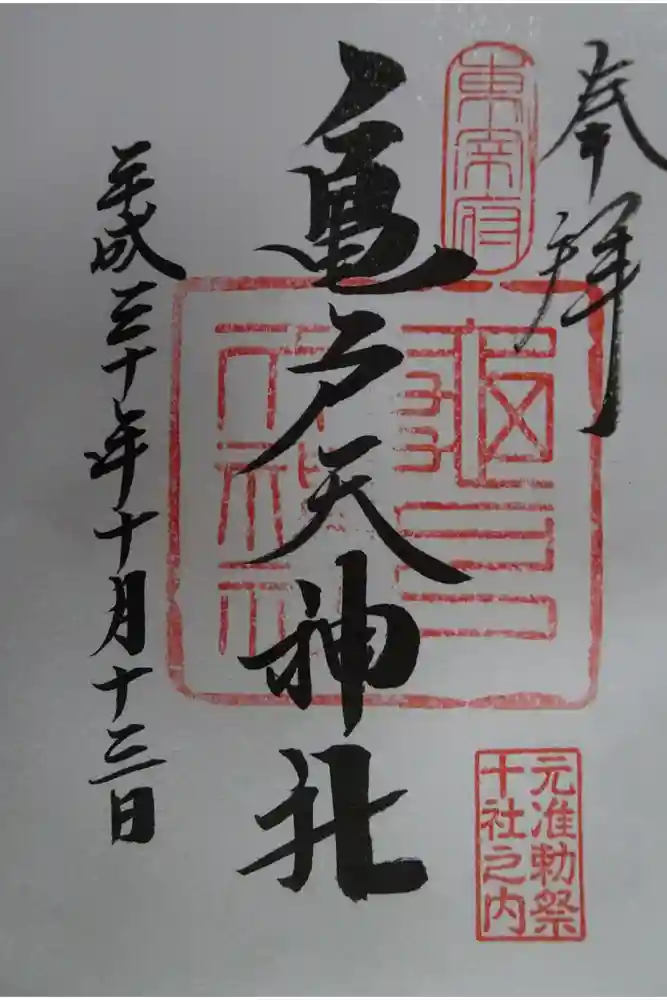 奉拝
東宰府
亀戸天神社
亀戸
天神社
元准勅祭
十社之内
平成三十年十月十三日